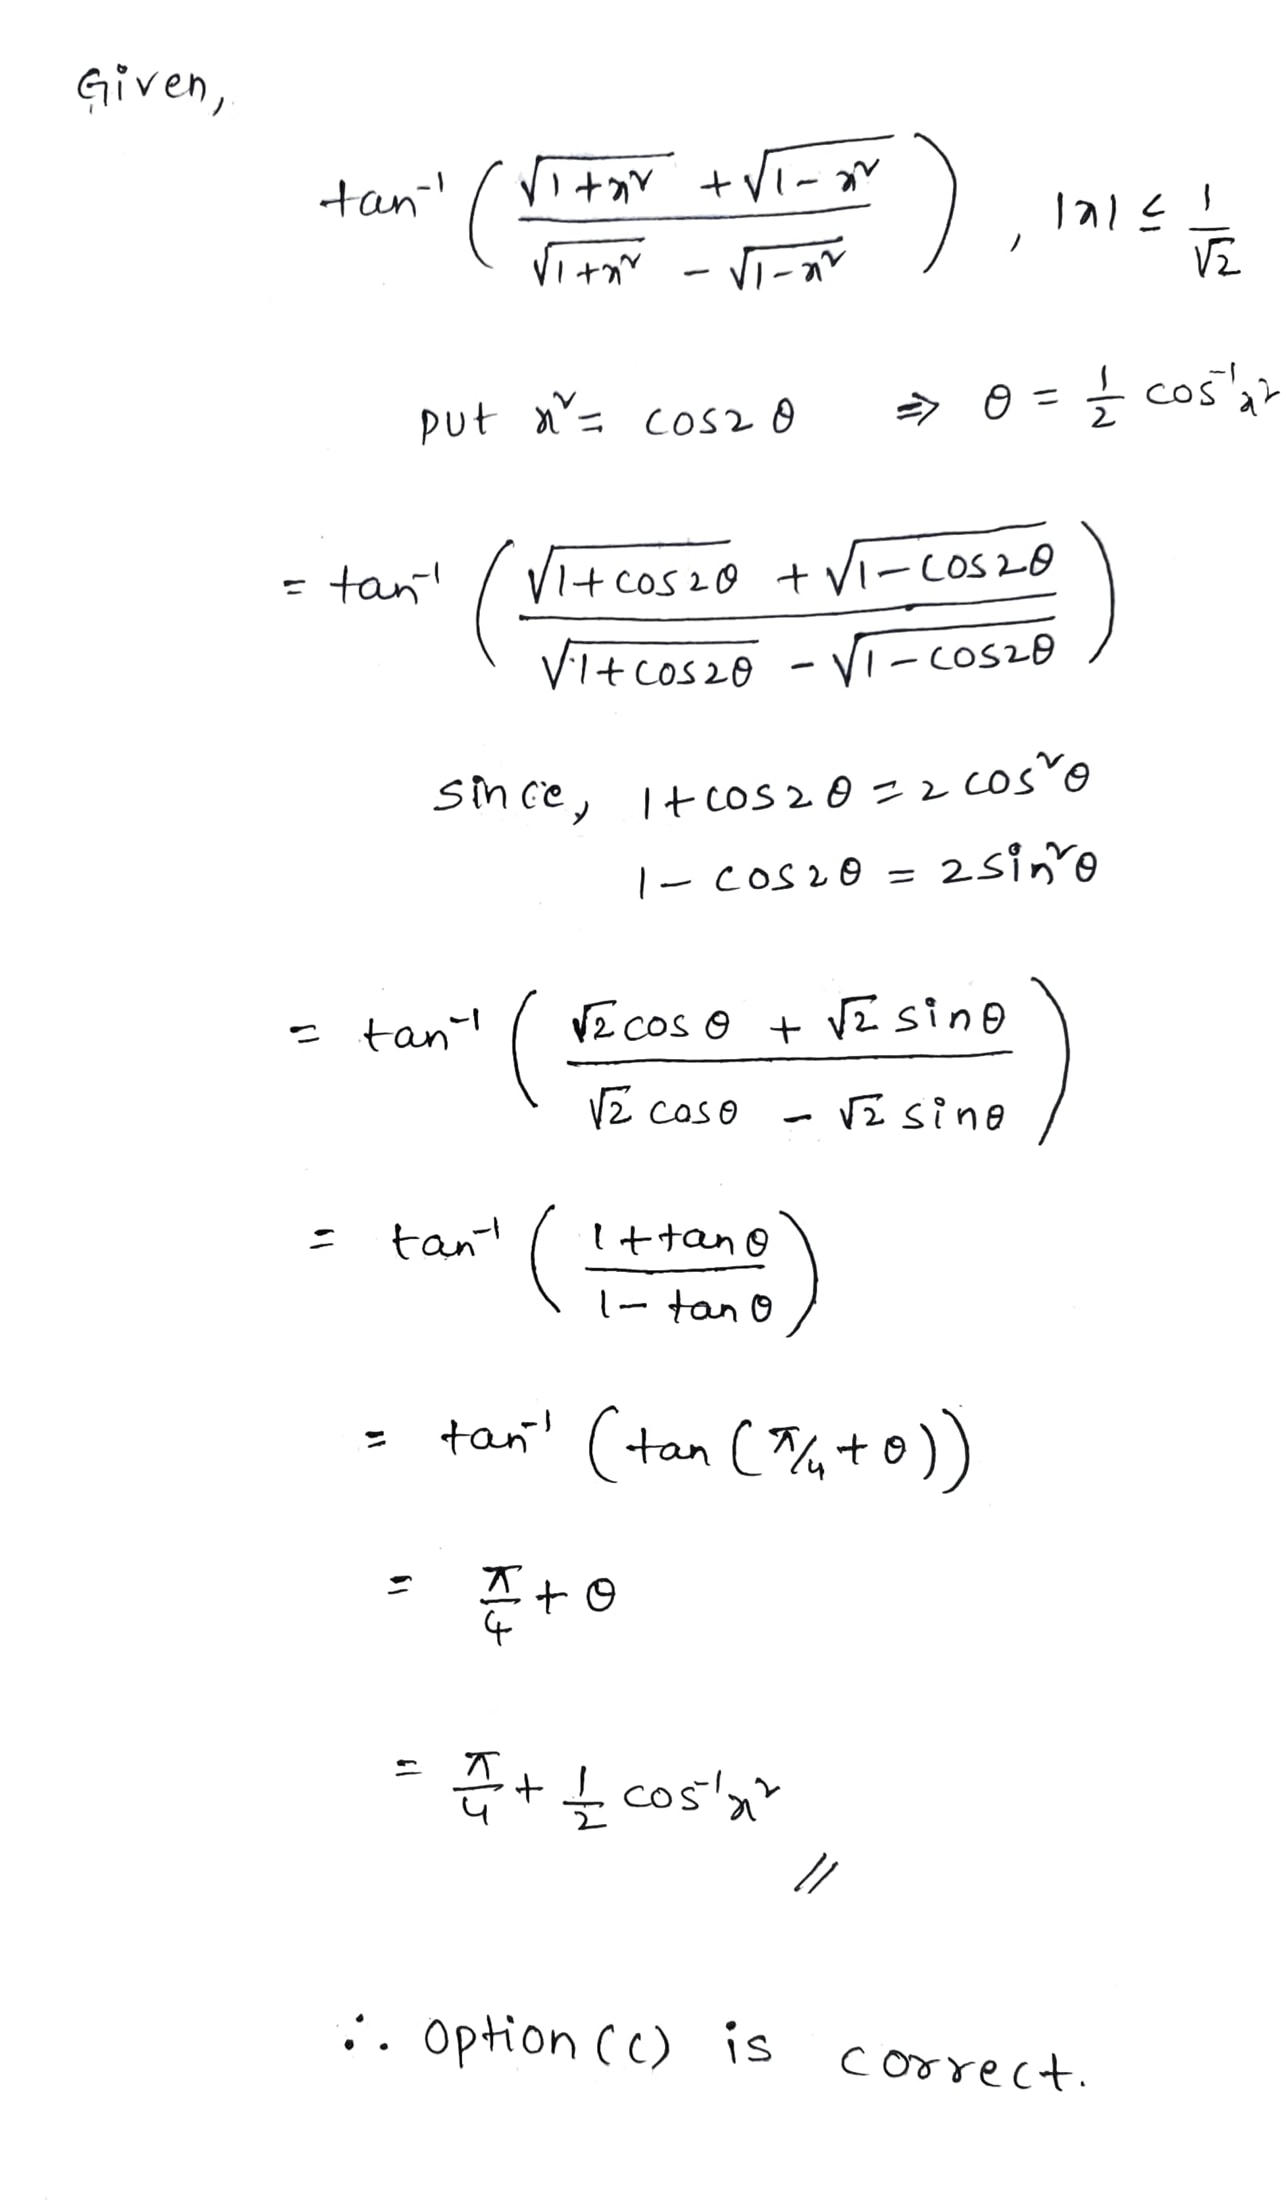 Given,
tan⁻¹ ( (√(1+x²) + √(1-x²)) / (√(1+x²) - √(1-x²)) ) , |x| ≤ 1/√2
put x² = cos2θ ⇒ θ = 1/2 cos⁻¹x²
= tan⁻¹ ( (√(1+cos2θ) + √(1-cos2θ)) / (√(1+cos2θ) - √(1-cos2θ)) )
since, 1+cos2θ = 2cos²θ
1-cos2θ = 2sin²θ
= tan⁻¹ ( (√2 cosθ + √2 sinθ) / (√2 cosθ - √2 sinθ) )
= tan⁻¹ ( (1+tanθ) / (1-tanθ) )
= tan⁻¹ (tan (π/4+θ))
= π/4 + θ
= π/4 + 1/2 cos⁻¹x²
//
∴ option (c) is correct.